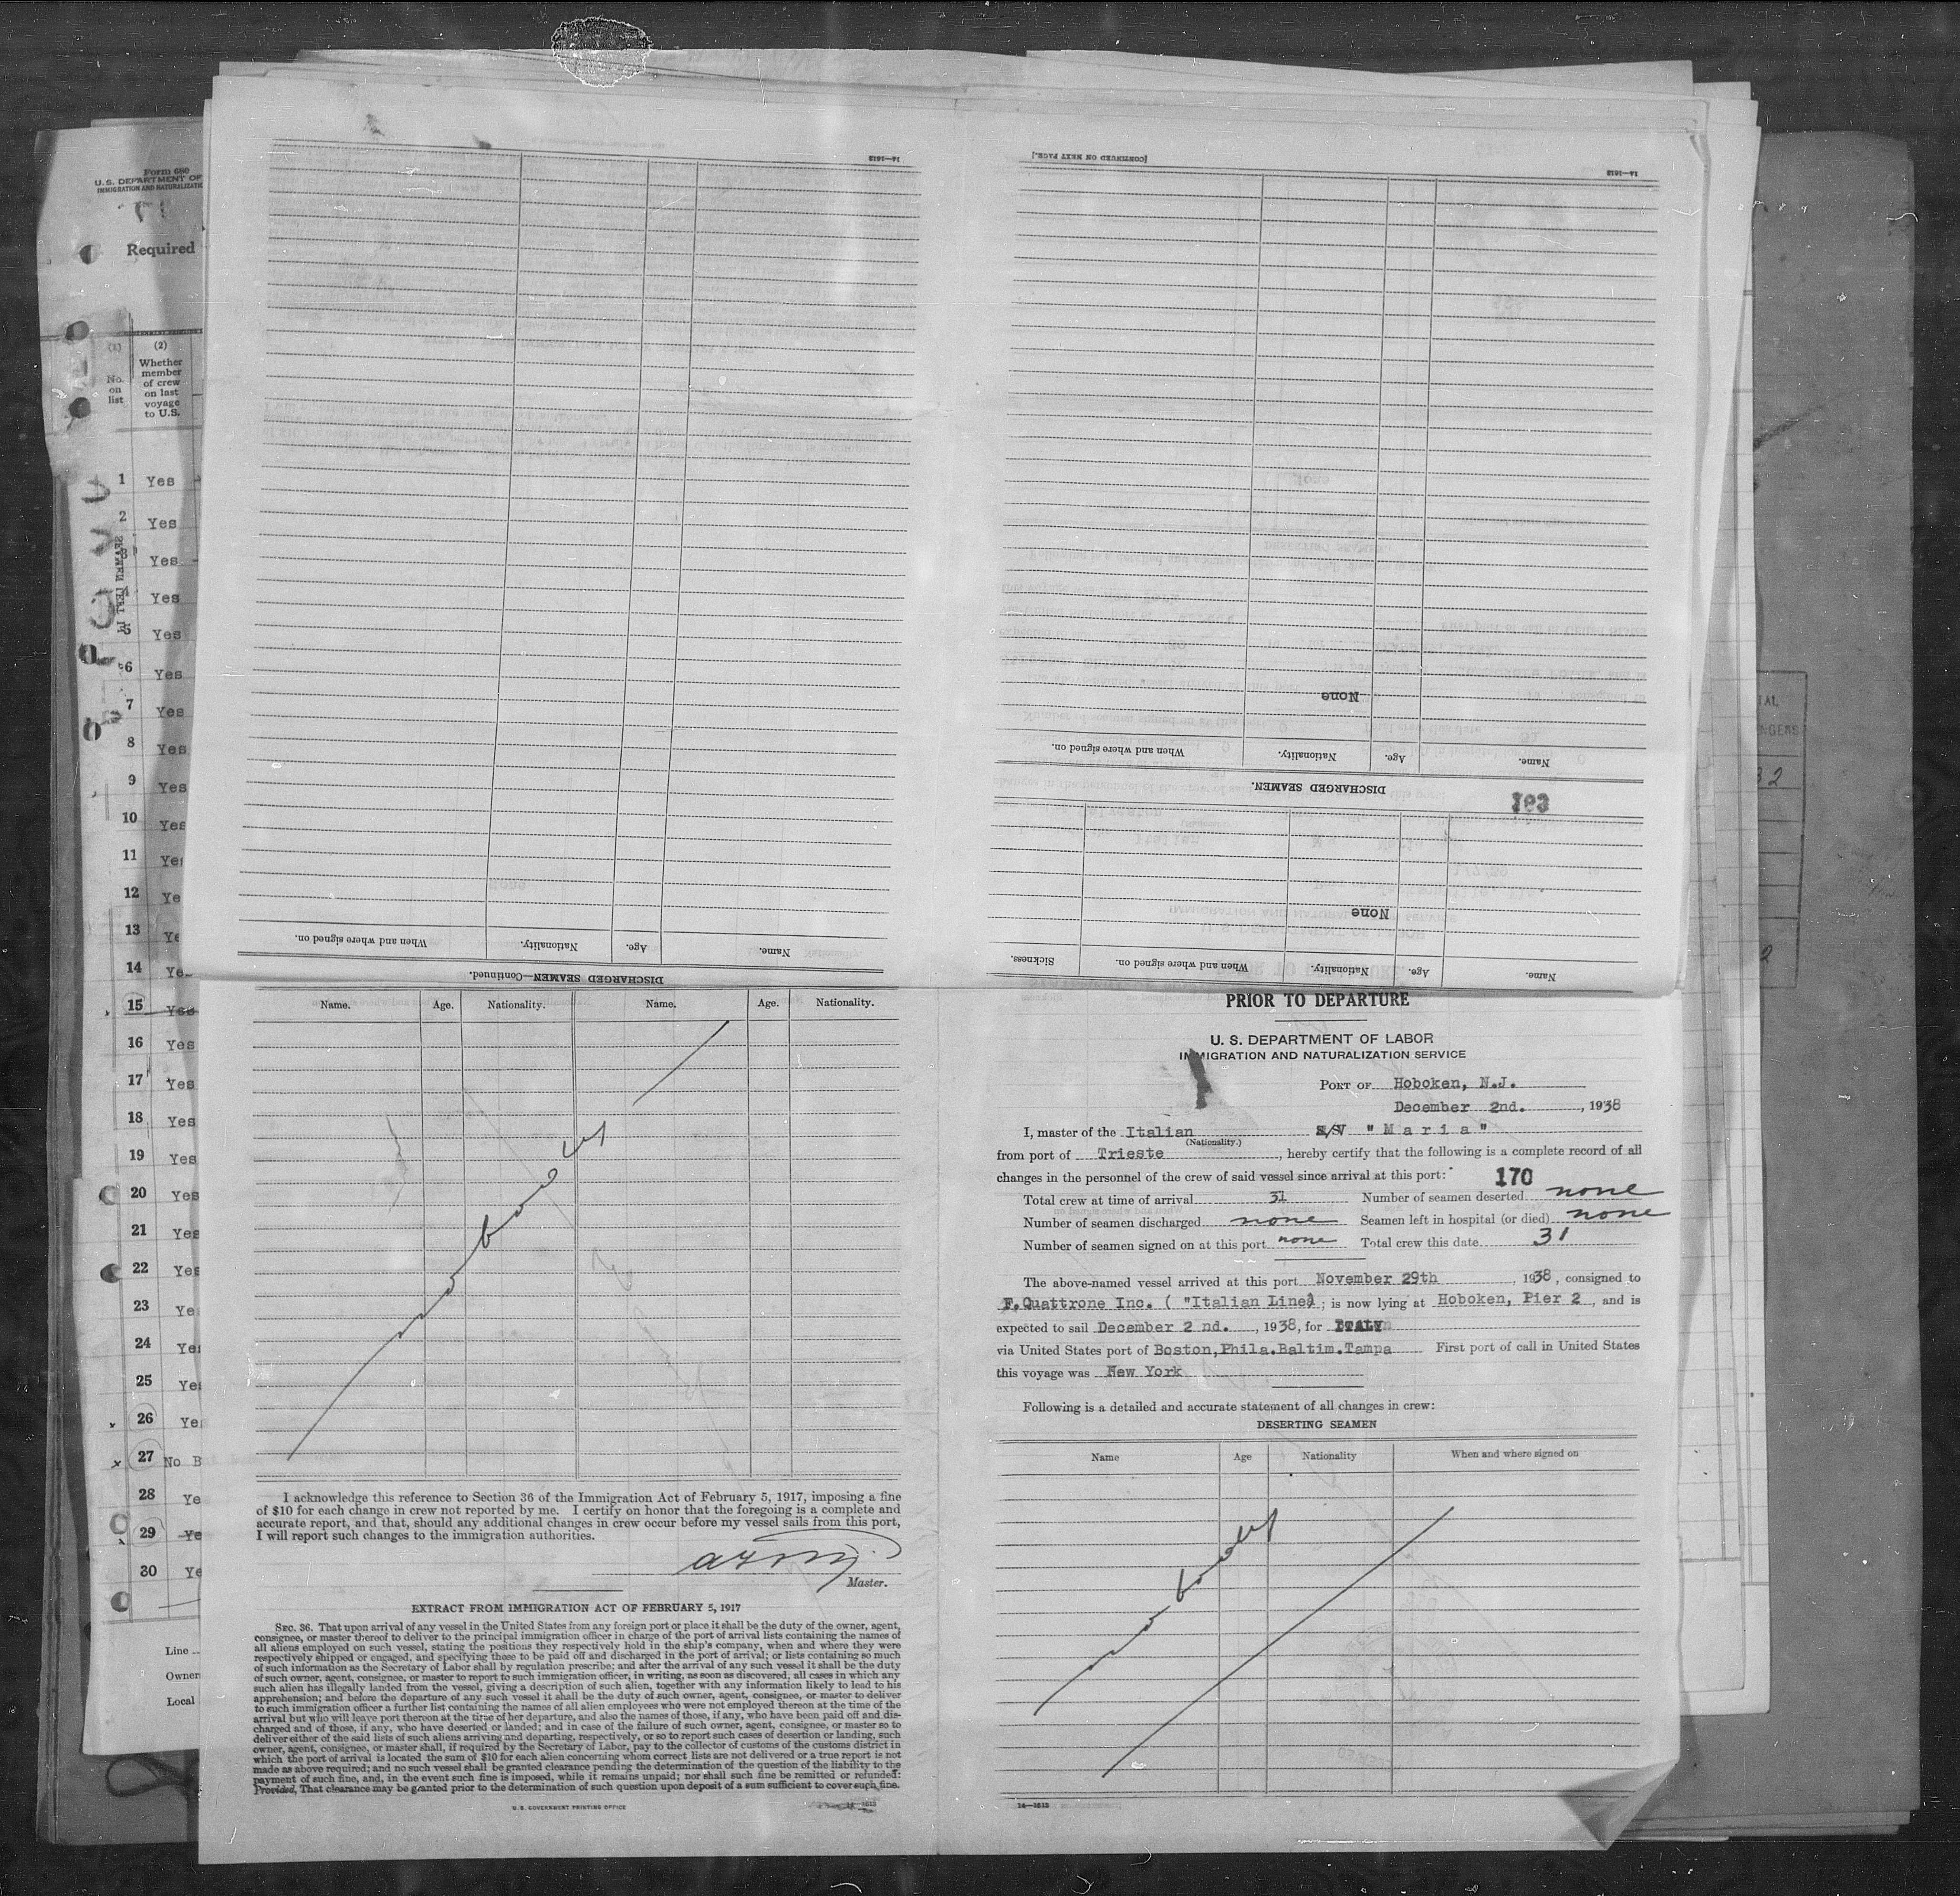 Form 680
U. S. DEPARTMENT OF
IMMIGRATION AND NATURALIZATI
Required
(1)
No.
on
list
(2)
Whether
member
of crew
on last
voyage
to U.S.
1 Yes
2 Yes
3 Yes
4 Yes
5 Yes
6 Yes
7 Yes
8 Yes
9 Yes
10 Yes
11 Yes
12 Ye
13 Ye
14 Ye
15 Yes
16 Yes
17 Yes
18 Yes
19 Yes
20 Yes
21 Yes
22 Yes
23 Ye
24 Ye
25 Ye
26 Ye
27 No B
28 Ye
29 Ye
30 Ye
Line
Owner
Local
14—1613
DISCHARGED SEAMEN—Continued.
Name. Age. Nationality. When and where signed on.
[CONTINUED ON NEXT PAGE.]
14—1613
Name. Age. Nationality. When and where signed on. Sickness.
None
163
DISCHARGED SEAMEN.
Name. Age. Nationality. When and where signed on.
None
Name. Age. Nationality. Name. Age. Nationality.
I acknowledge this reference to Section 36 of the Immigration Act of February 5, 1917, imposing a fine
of $10 for each change in crew not reported by me. I certify on honor that the foregoing is a complete and
accurate report, and that, should any additional changes in crew occur before my vessel sails from this port,
I will report such changes to the immigration authorities.
Master.
EXTRACT FROM IMMIGRATION ACT OF FEBRUARY 5, 1917
SEC. 36. That upon arrival of any vessel in the United States from any foreign port or place it shall be the duty of the owner, agent,
consignee, or master thereof to deliver to the principal immigration officer in charge of the port of arrival lists containing the names of
all aliens employed on such vessel, stating the positions they respectively hold in the ship's company, when and where they were
respectively shipped or engaged, and specifying those to be paid off and discharged in the port of arrival; or lists containing so much
of such information as the Secretary of Labor shall by regulation prescribe; and after the arrival of any such vessel it shall be the duty
of such owner, agent, consignee, or master to report to such immigration officer, in writing, as soon as discovered, all cases in which any
such alien has illegally landed from the vessel, giving a description of such alien, together with any information likely to lead to his
apprehension; and before the departure of any such vessel it shall be the duty of such owner, agent, consignee, or master to deliver
to such immigration officer a further list containing the names of all alien employees who were not employed thereon at the time of the
arrival but who will leave port thereon at the time of her departure, and also the names of those, if any, who have been paid off and dis-
charged and of those, if any, who have deserted or landed; and in case of the failure of such owner, agent, consignee, or master so to
deliver either of the said lists of such aliens arriving and departing, respectively, or so to report such cases of desertion or landing, such
owner, agent, consignee, or master shall, if required by the Secretary of Labor, pay to the collector of customs of the customs district in
which the port of arrival is located the sum of $10 for each alien concerning whom correct lists are not delivered or a true report is not
made as above required; and no such vessel shall be granted clearance pending the determination of the question of the liability to the
payment of such fine, and, in the event such fine is imposed, while it remains unpaid; nor shall such fine be remitted or refunded:
Provided, That clearance may be granted prior to the determination of such question upon deposit of a sum sufficient to cover such fine.
U. S. GOVERNMENT PRINTING OFFICE
14—1613
PRIOR TO DEPARTURE
U. S. DEPARTMENT OF LABOR
IMMIGRATION AND NATURALIZATION SERVICE
PORT OF Hoboken, N.J.
December 2nd. , 1938
I, master of the Italian S/V "Maria"
(Nationality.)
from port of Trieste , hereby certify that the following is a complete record of all
changes in the personnel of the crew of said vessel since arrival at this port:
170
Total crew at time of arrival 31 Number of seamen deserted none
Number of seamen discharged none Seamen left in hospital (or died) none
Number of seamen signed on at this port none Total crew this date 31
The above-named vessel arrived at this port November 29th , 1938, consigned to
F.Quattrone Inc. ( "Italian Line) ; is now lying at Hoboken, Pier 2 , and is
expected to sail December 2 nd. , 1938, for ITALY
via United States port of Boston,Phila.Baltim.Tampa First port of call in United States
this voyage was New York
Following is a detailed and accurate statement of all changes in crew:
DESERTING SEAMEN
Name Age Nationality When and where signed on
14—1613